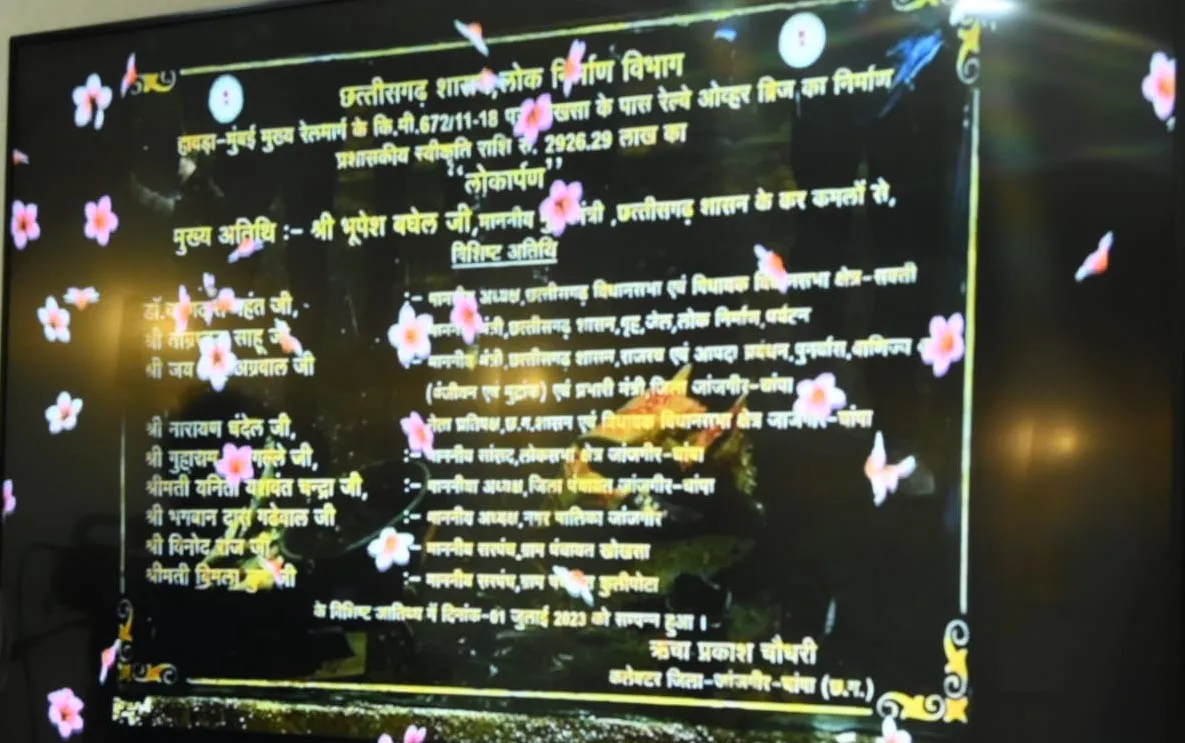 छत्तीसगढ़ शासन,लोक निर्माण विभाग
हावड़ा-मुंबई मुख्य रेलमार्ग के कि.मी.672/11-18 पर खोखसा के पास रेल्वे ओव्हर ब्रिज का निर्माण
प्रशासकीय स्वीकृति राशि रु. 2926.29 लाख का
“लोकार्पण”
मुख्य अतिथि :- श्री भूपेश बघेल जी,माननीय मुख्यमंत्री ,छत्तीसगढ़ शासन के कर कमलों से,
विशिष्ट अतिथि
डॉ. महंत जी, :- माननीय अध्यक्ष,छत्तीसगढ़ विधानसभा एवं विधायक विधानसभा क्षेत्र-सक्ती
श्री साहू जी :- माननीय मंत्री,छत्तीसगढ़ शासन,गृह,जेल,लोक निर्माण,पर्यटन
श्री जय अग्रवाल जी :- माननीय मंत्री,छत्तीसगढ़ शासन,राजस्व एवं आपदा प्रबंधन,पुनर्वास,वाणिज्य
(पंजीयन एवं मुद्रांक) एवं प्रभारी मंत्री,जिला जांजगीर-चांपा
श्री नारायण चंदेल जी, नेता प्रतिपक्ष,छ.ग.शासन एवं विधायक विधानसभा क्षेत्र जांजगीर-चांपा
श्री गुहाराम जी, :- माननीय सांसद,लोकसभा क्षेत्र जांजगीर-चांपा
श्रीमती यनिता यशवंत चन्द्रा जी, :- माननीया अध्यक्ष,जिला पंचायत जांजगीर-चांपा
श्री भगवान दास गढ़ेवाल जी :- माननीय अध्यक्ष,नगर पालिका जांजगीर
श्री विनोद राज जी :- माननीय सरपंच,ग्राम पंचायत खोखसा
श्रीमती बिमला जी :- माननीय सरपंच,ग्राम पंचायत कुलीपोटा
के विशिष्ट आतिथ्य में दिनांक-01 जुलाई 2023 को सम्पन्न हुआ ।
ऋचा प्रकाश चौधरी
कलेक्टर जिला-जांजगीर-चांपा (छ.ग.)